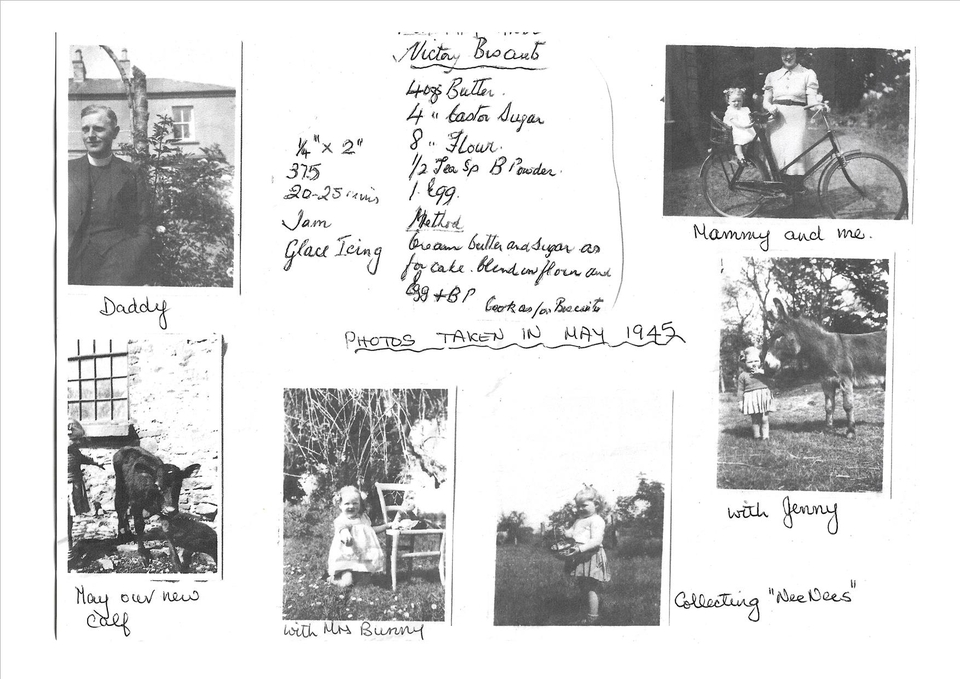 Victory Biscuits
4ozs Butter.
4 " Castor Sugar
8 " Flour.
1/2 Tea Sp B Powder.
1. Egg.
Method
Cream butter and sugar as
for cake. blend in flour and
Egg + BP
Cook as for Biscuits
1/4" x 2"
375
20-25 mins
Jam
Glace Icing
PHOTOS TAKEN IN MAY 1945
Daddy
Mammy and me.
May our new
calf
with Mrs Bunny
with Jenny
Collecting "NeeNees"